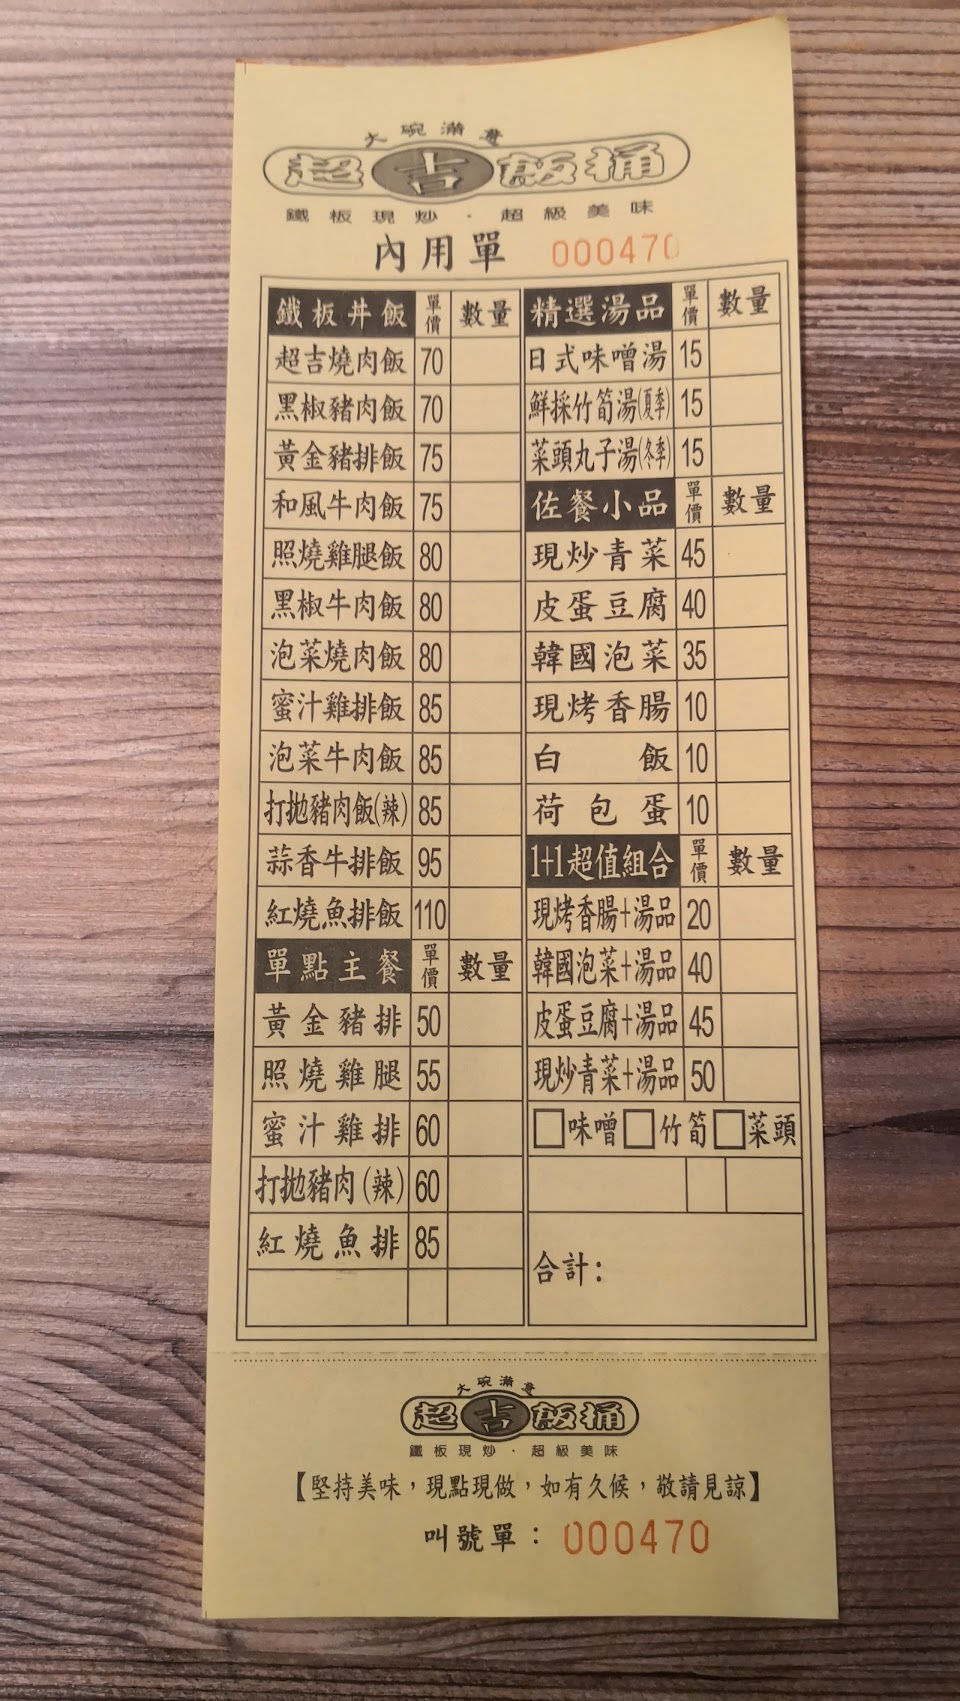 大碗滿意
超吉飯桶
鐵板現炒・超級美味
內用單 000470
鐵板丼飯 單價 數量
超吉燒肉飯 70
黑椒豬肉飯 70
黃金豬排飯 75
和風牛肉飯 75
照燒雞腿飯 80
黑椒牛肉飯 80
泡菜燒肉飯 80
蜜汁雞排飯 85
泡菜牛肉飯 85
打拋豬肉飯(辣) 85
蒜香牛排飯 95
紅燒魚排飯 110
單點主餐 單價 數量
黃金豬排 50
照燒雞腿 55
蜜汁雞排 60
打拋豬肉(辣) 60
紅燒魚排 85
精選湯品 單價 數量
日式味噌湯 15
鮮採竹筍湯(夏季) 15
菜頭丸子湯(冬季) 15
佐餐小品 單價 數量
現炒青菜 45
皮蛋豆腐 40
韓國泡菜 35
現烤香腸 10
白飯 10
荷包蛋 10
1+1超值組合 單價 數量
現烤香腸+湯品 20
韓國泡菜+湯品 40
皮蛋豆腐+湯品 45
現炒青菜+湯品 50
□味噌□竹筍□菜頭
合計：
大碗滿意
超吉飯桶
鐵板現炒・超級美味
【堅持美味，現點現做，如有久候，敬請見諒】
叫號單：000470